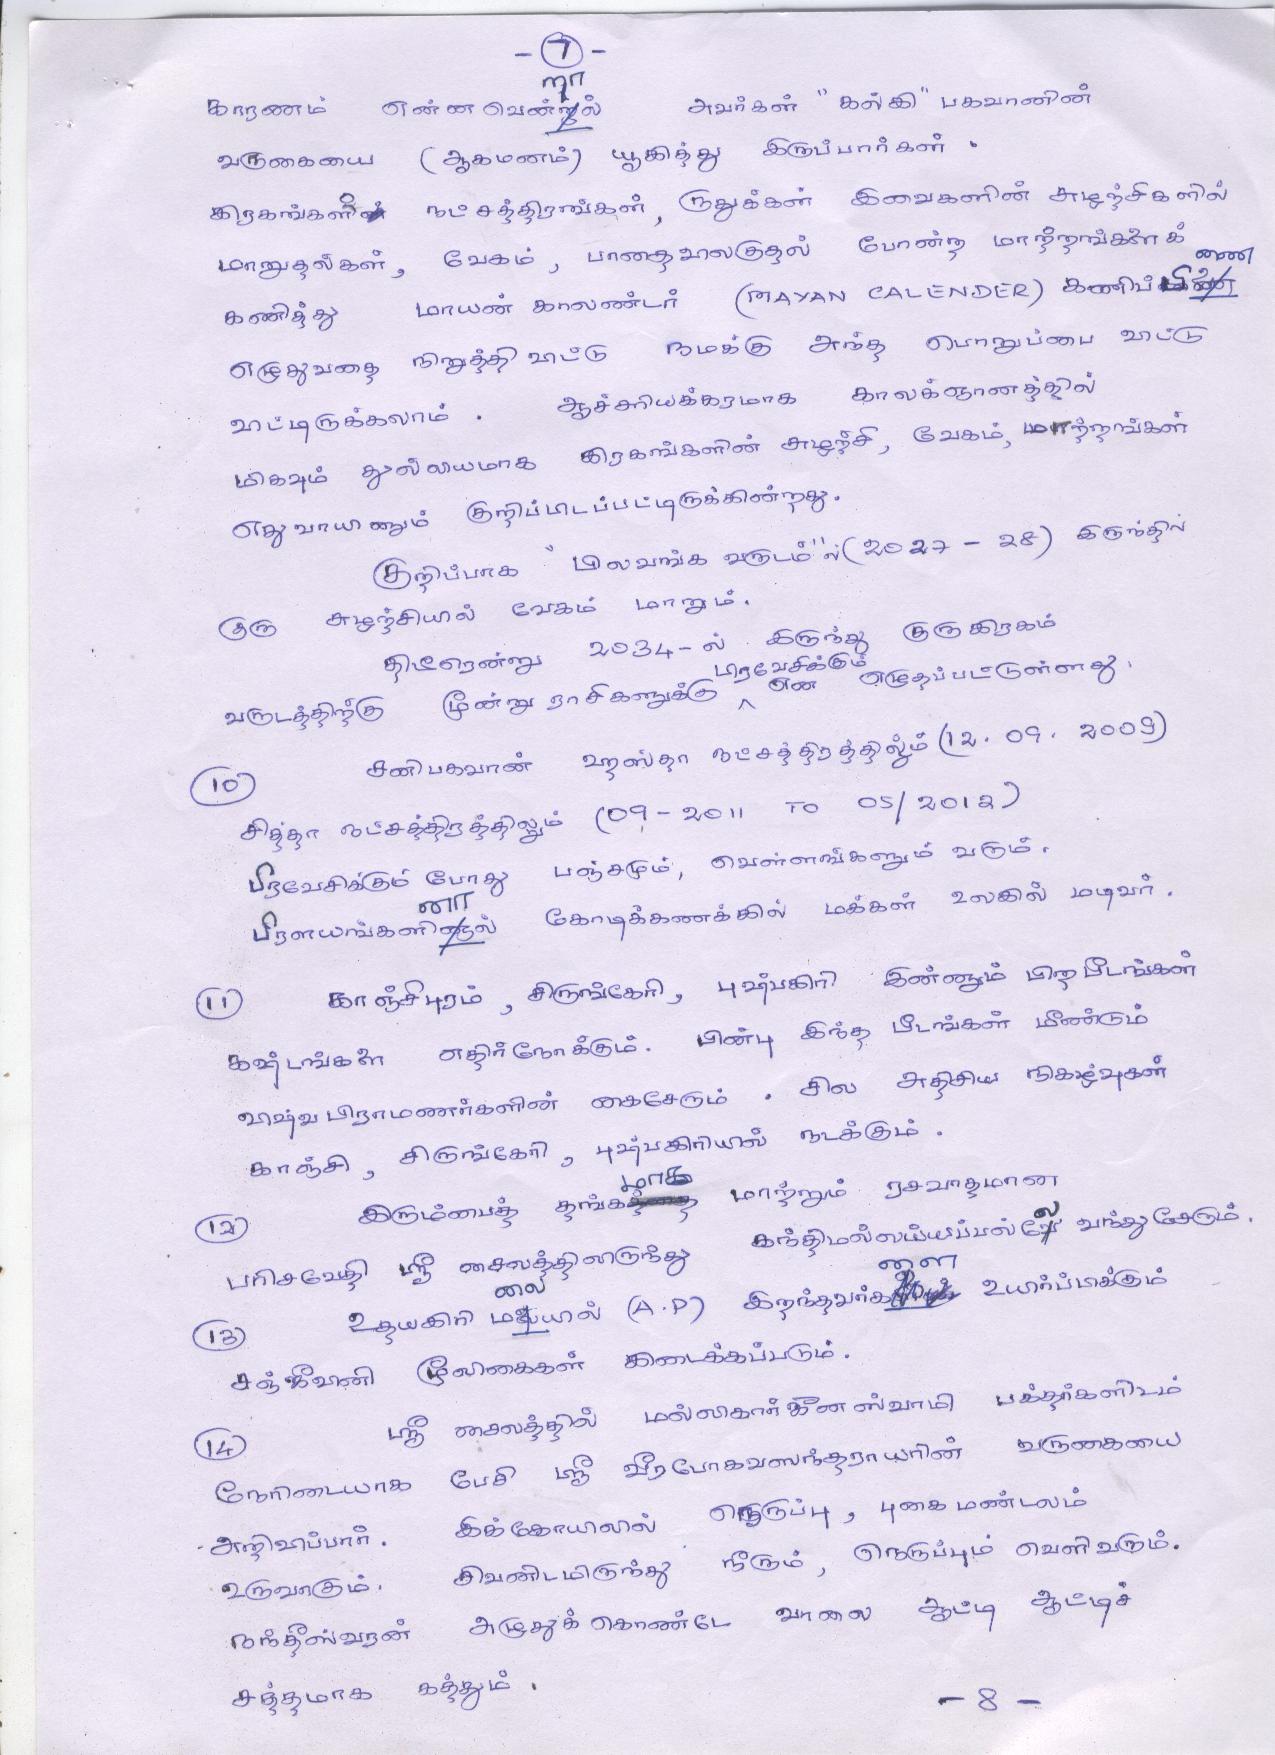 - 7 -
காரணம் என்னவென்றால் அவர்கள் "கல்கி" பகவானின்
வருகையை (ஆகமனம்) யூகித்து இருப்பார்கள்.
கிரகங்களின் நட்சத்திரங்கள், ருதுக்கள் இவைகளின் சுழற்சிகளில்
மாறுதல்கள், வேகம், பாதைவிலகுதல் போன்ற மாற்றங்களைக்
கணித்து மாயன் காலண்டர் (MAYAN CALENDER)
எழுதுவதை நிறுத்திவிட்டு நமக்கு அந்த பொறுப்பை விட்டு
விட்டிருக்கலாம். ஆச்சரியக்கரமாக காலக்ஞானத்தில்
மிகவும் துல்லியமாக கிரகங்களின் சுழற்சி, வேகம், மாற்றங்கள்
எதுவாயினும் குறிப்பிடப்பட்டிருக்கின்றது.
குறிப்பாக "பிலவங்க வருடம்"ல் (2027 - 28) இருந்தில்
குரு சுழற்சியில் வேகம் மாறும்.
திடீரென்று 2034-ல் இருந்து குருகிரகம்
வருடத்திற்கு மூன்று ராசிகளுக்கு பிரவேசிக்கும் என எழுதப்பட்டுள்ளது.
10 சனிபகவான் ஹஸ்தா நட்சத்திரத்திலும் (12.09.2009)
சித்தா நட்சத்திரத்திலும் (09-2011 TO 05/2012)
பிரவேசிக்கும் போது பஞ்சமும், வெள்ளங்களும் வரும்.
பிரளயங்களினால் கோடிக்கணக்கில் மக்கள் உலகில் மடிவர்.
11 காஞ்சிபுரம், சிருங்கேரி, புஷ்பகிரி இன்னும் பிறபீடங்கள்
கஷ்டங்களை எதிர்நோக்கும். பின்பு இந்த பீடங்கள் மீண்டும்
விஷ்வபிராமணர்களின் கைசேரும். சில அதிசிய நிகழ்வுகள்
காஞ்சி, சிருங்கேரி, புஷ்பகிரியில் நடக்கும்.
12 இரும்பைத் தங்கமாக மாற்றும் ரசவாதமான
பரிசவேதி ஸ்ரீ சைலத்திலிருந்து கந்திமல்லய்யப்பல்லே வந்துசேரும்.
13 உதயகிரி மலையில் (A.P) இறந்தவர்களை உயிர்ப்பிக்கும்
சஞ்ஜீவினி மூலிகைகள் கிடைக்கப்படும்.
14 ஸ்ரீ சைலத்தில் மல்லிகார்ஜீனஸ்வாமி பக்தர்களிடம்
நேரிடையாக பேசி ஸ்ரீ வீரபோகவஸந்தராயரின் வருகையை
அறிவிப்பார். இக்கோயிலில் நெருப்பு, புகை மண்டலம்
உருவாகும். சிவனிடமிருந்து நீரும், நெருப்பும் வெளிவரும்.
நந்தீஸ்வரன் அழுதுக் கொண்டே வாலை ஆட்டி ஆட்டிச்
சத்தமாக கத்தும்.
- 8 -